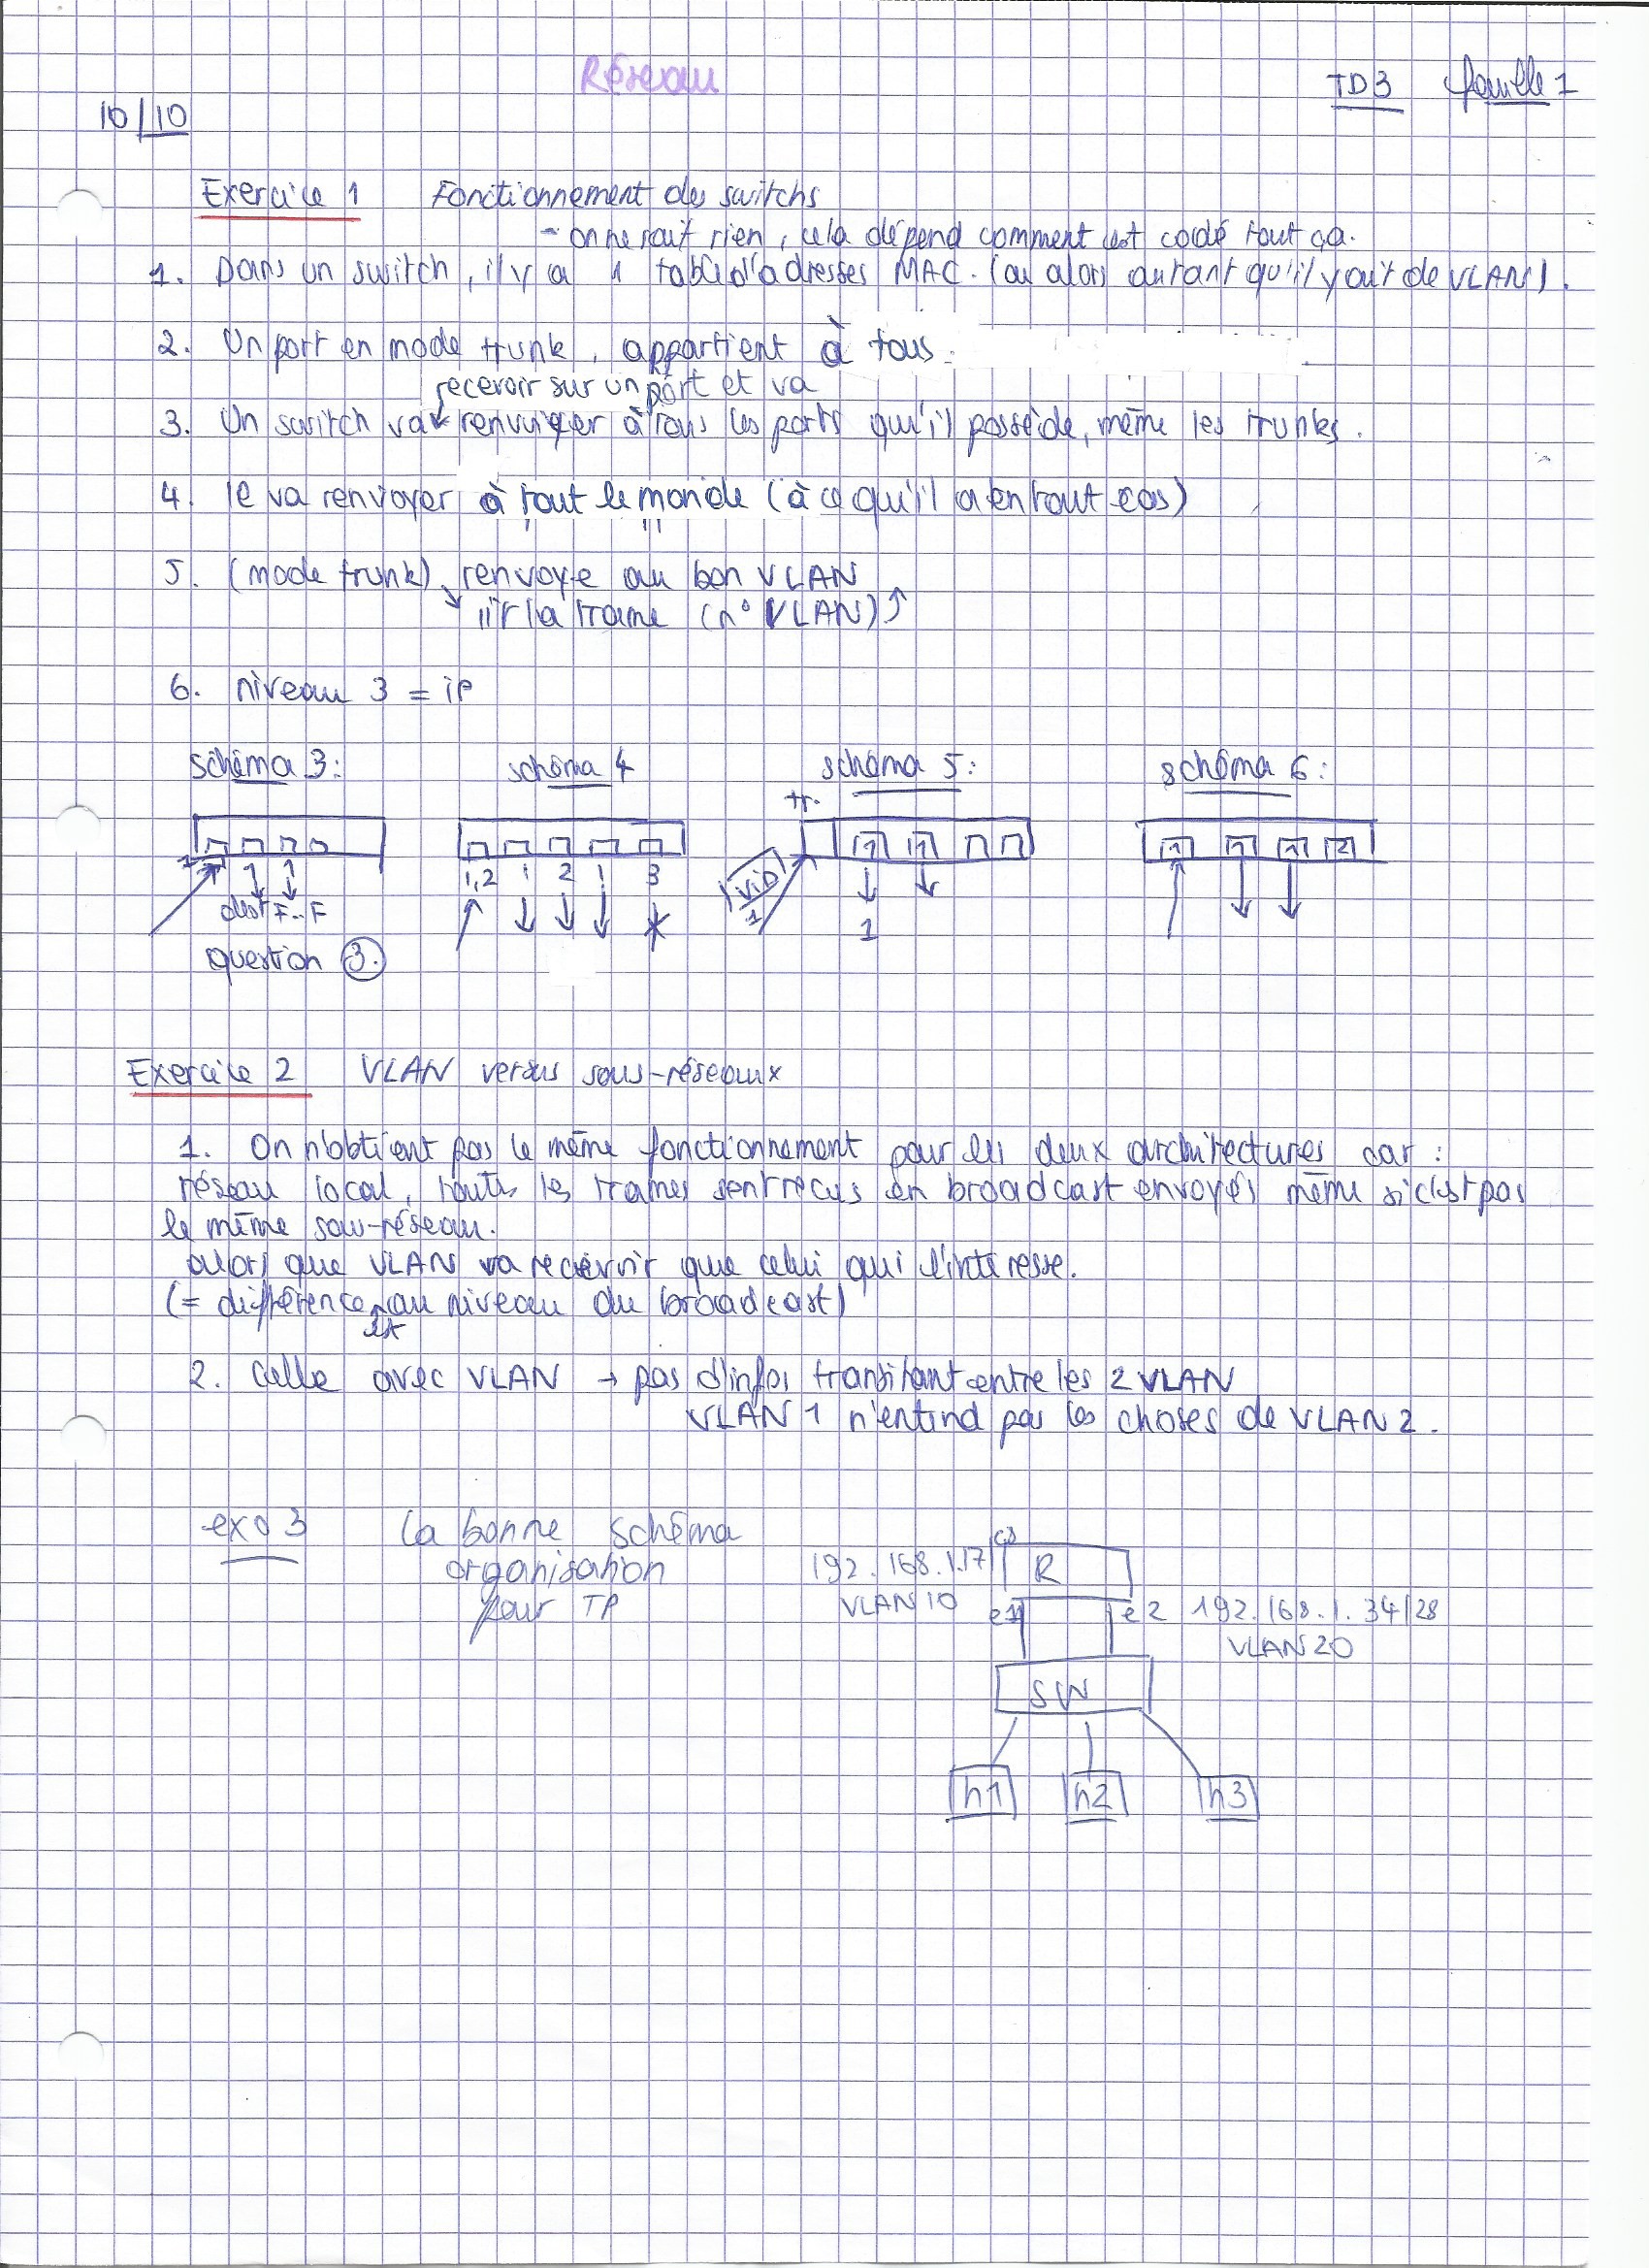 Réseau
TD3 feuille 1
10/10
Exercice 1 Fonctionnement des switchs
- on ne sait rien, cela dépend comment est codé tout ça.
1. Dans un switch, il y a 1 table d'adresses MAC. (ou alors autant qu'il y ait de VLAN).
2. Un port en mode trunk, appartient à tous.
recevoir sur un port et va
3. Un switch va renvoyer à tous les ports qu'il possède, même les trunks.
4. Il va renvoyer à tout le monde (à ce qu'il a en tout cas)
5. (mode trunk) renvoye au bon VLAN
↘ lit la trame (n° VLAN) ↑
6. niveau 3 = iP
schéma 3: schéma 4 schéma 5: schéma 6:
tr.
1 1 1
1,2 1 2 1 3
1 1
1 1 1 2
dest F..F
VID 1
1
question 3.
Exercice 2 VLAN versus sous-réseaux
1. On n'obtient pas le même fonctionnement pour les deux architectures car :
réseau local, toutes les trames sont reçus en broadcast envoyés même si c'est pas
le même sous-réseau.
alors que VLAN va recevoir que celui qui l'intéresse.
(= différence au niveau du broadcast)
est
2. Celle avec VLAN → pas d'infos transitant entre les 2 VLAN
VLAN 1 n'entend pas les choses de VLAN 2.
exo 3 la bonne schéma
organisation
pour TP
192.168.1.17 R
VLAN 10 e1 e2 192.168.1.34/28
VLAN 20
SW
h1 h2 h3